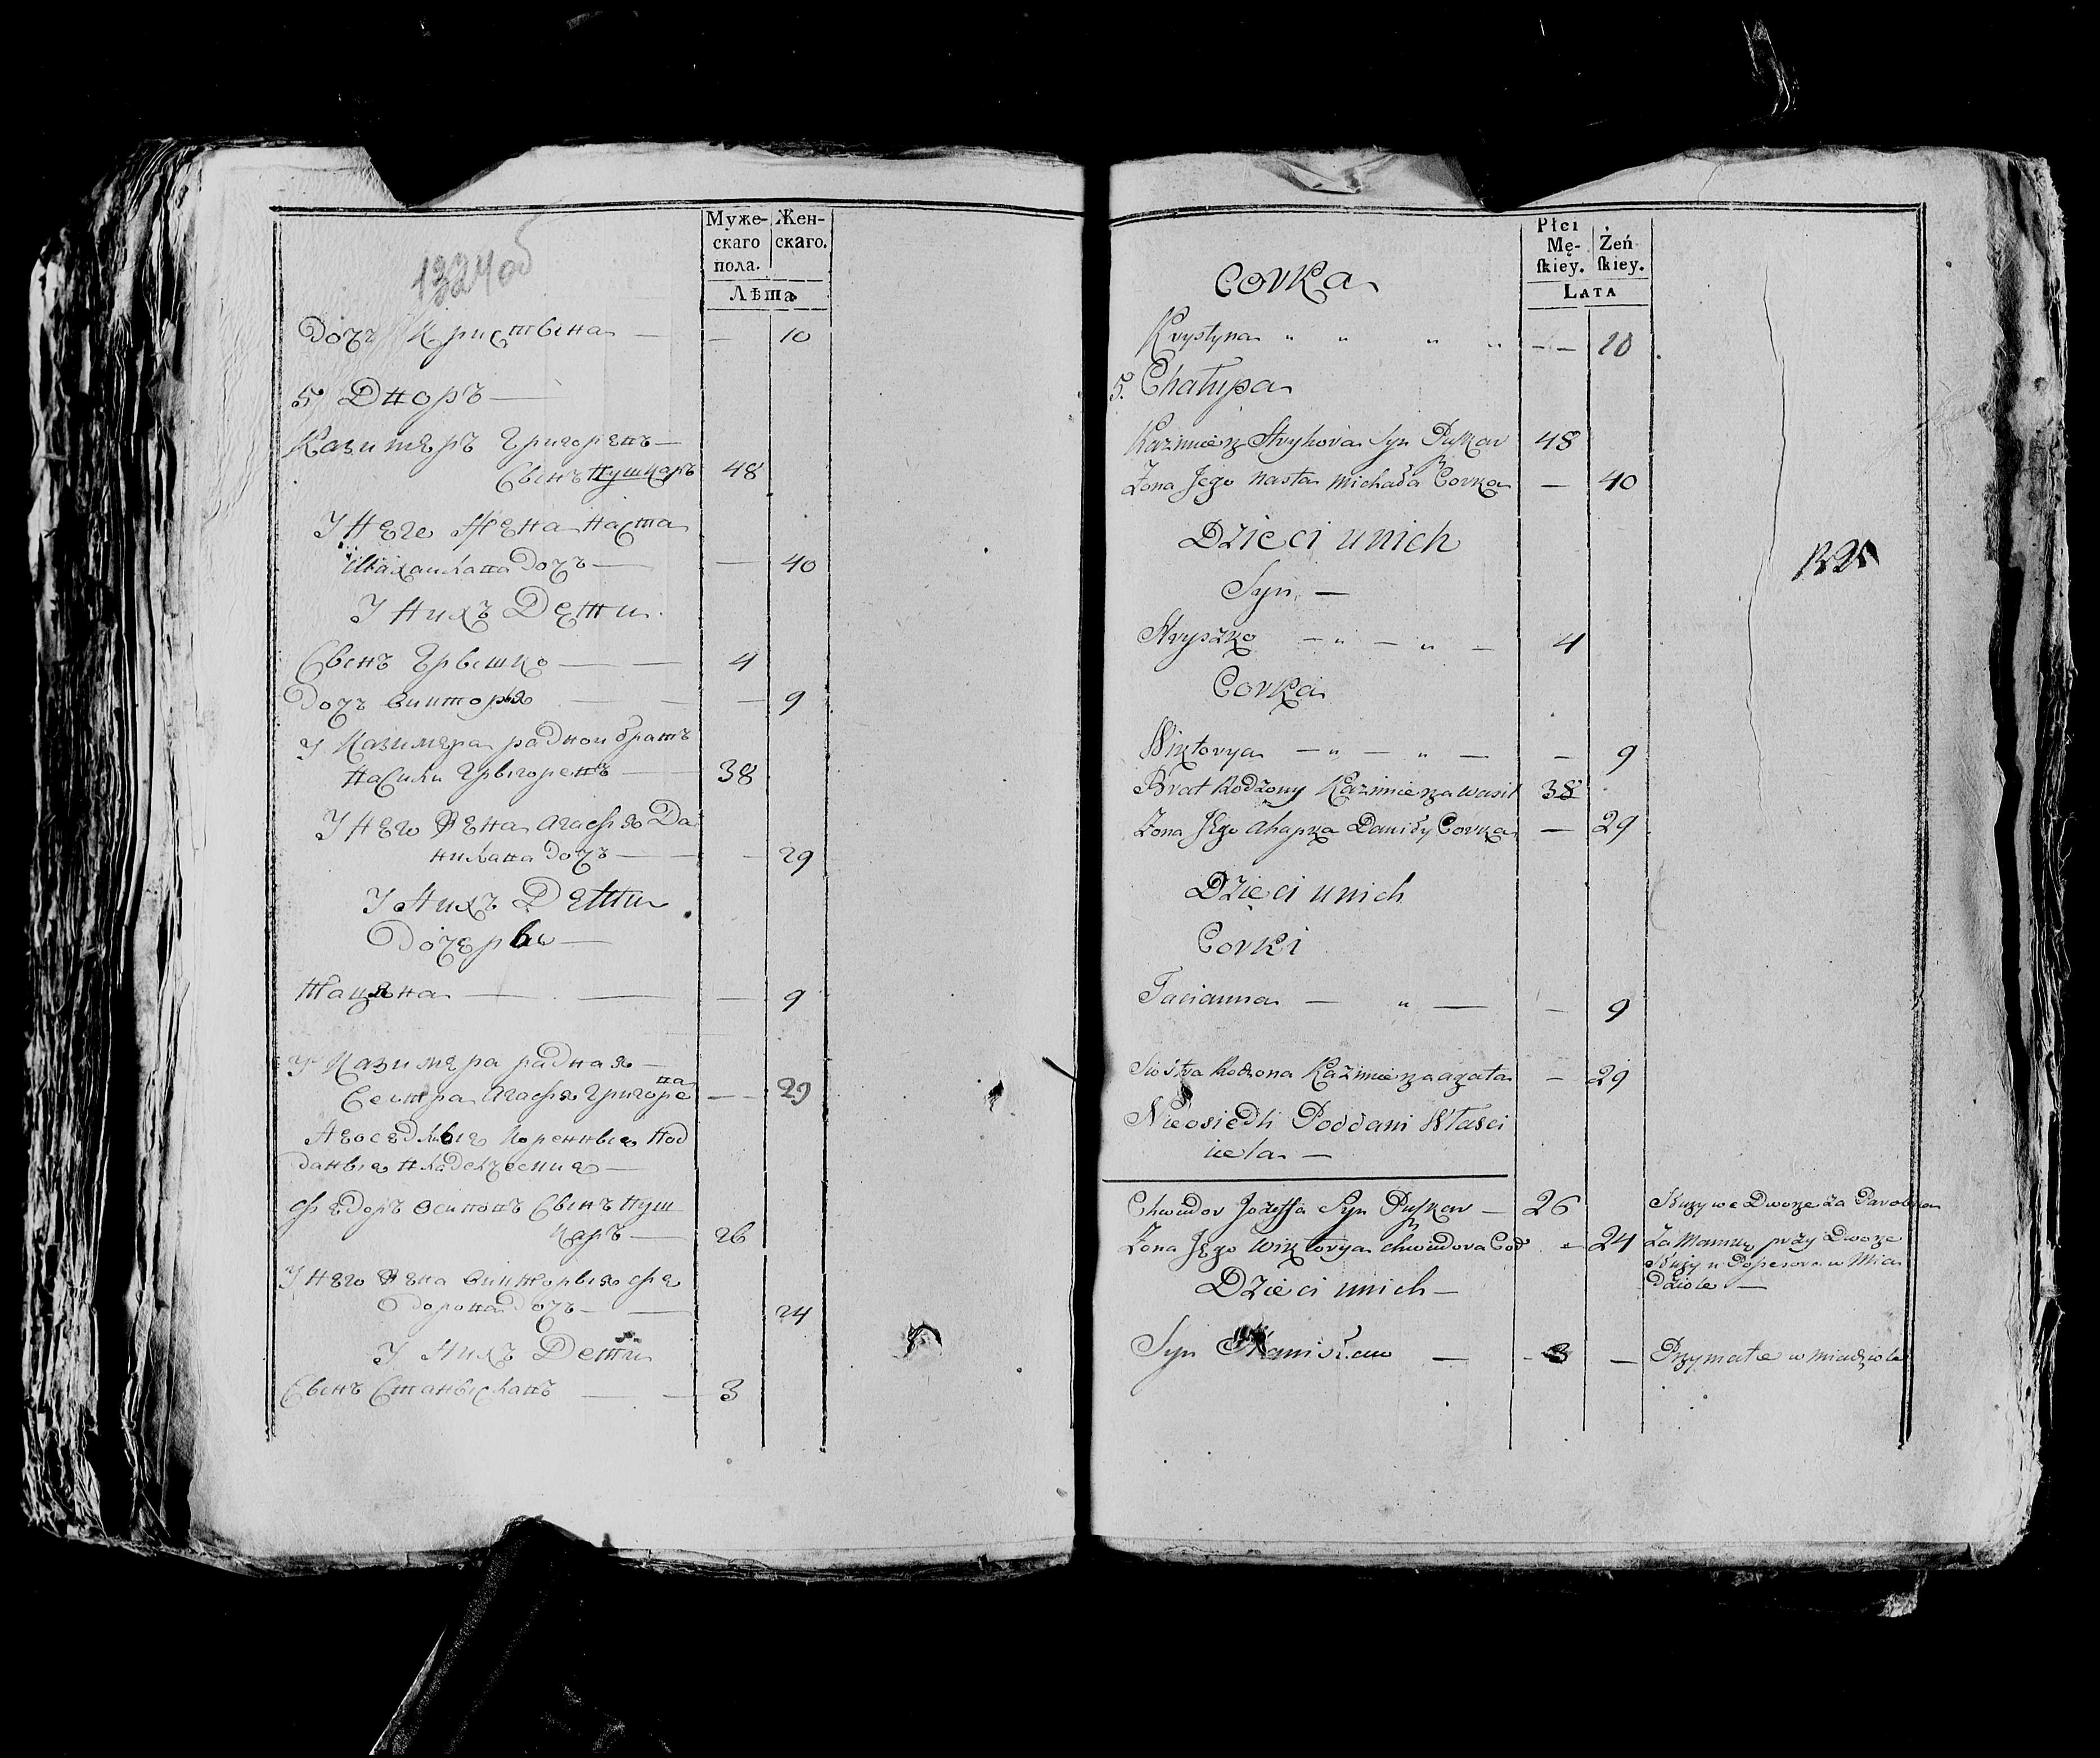 1324 об
Муже-
скаго
пола.
Жен-
скаго.
Лѣта
Дочь Криствена — — 10
5 Дворъ —
Казимеръ Григоревъ —
Свенъ Пушкаръ 48
У Него Жена Наста
Михайлава Дочъ — — 40
У Нихъ Дети
Свенъ Грвешко — — 4
Дочъ Викторвя — — — 9
У Казимера раднои братъ
Васили Грвгоревъ — 38
У Него Жена Агафя Да
нилава Дочъ — — 29
У Нихъ Дети
Дочерве —
Тацяна — — — 9
У Казимера радная —
Сестра Агафя Григоре
ва — 29
Неоседлвıе Кореннвıе Под
данвıе Владелческие —
Федоръ Осиповъ Свенъ Пуш
каръ — 26
У Него Жена Викторвıя Фе
дорова Дочъ — — 24
У Нихъ Дети
Свенъ Станвıславъ — — 3
Płci
Mę-
ſkiey.
Żeń
ſkiey.
LATA
Corka
Krystyna " " " " — — 10
5. Chałupa
Kazimierz Hryhora Syn Puszkar 48
Zona Jego Nasta Michała Corka — 40
Dzieci u nich
1325
Syn —
Hryszko — " — " — 4
Corka
Wiktorya — " — " — — 9
Brat Rodzony Kazimierza Wasil 38
Zona Jego Ahapka Daniły Corka — 29
Dzieci u nich
Corki
Tacianna — " — — 9
Siostra Rodzona Kazimierza Agata — 29
Nieosiedli Poddani Własci
ciela —
Chwiedor Jozeffa Syn Puszkar — 26 Służy we Dworze za Parobka
Zona Jego Wiktorya Chwiedora Cor — 24 Za Mamkę przy Dworze
Służy u w Mia
Dzieci u nich —
dziole —
Syn Stanisław — - 3 — Przymatce w Miadziole